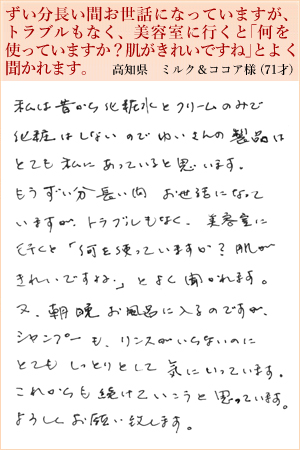 ずい分長い間お世話になっていますが、
トラブルもなく、美容室に行くと「何を
使っていますか？肌がきれいですね」とよく
聞かれます。　高知県　ミルク＆ココア様（71才）
私は昔から化粧水とクリームのみで
化粧はしないのでゆいさんの製品は
とても私にあっていると思います。
もうずい分長い間 お世話になって
いますが、トラブルもなく、美容室に
行くと「何を使っていますか？肌が
きれいですね」とよく聞かれます。
又、朝晩お風呂に入るのですが、
シャンプーも、リンスがいらないのに
とてもしっとりとして気にいっています。
これからも続けていこうと思っています。
よろしくお願い致します。